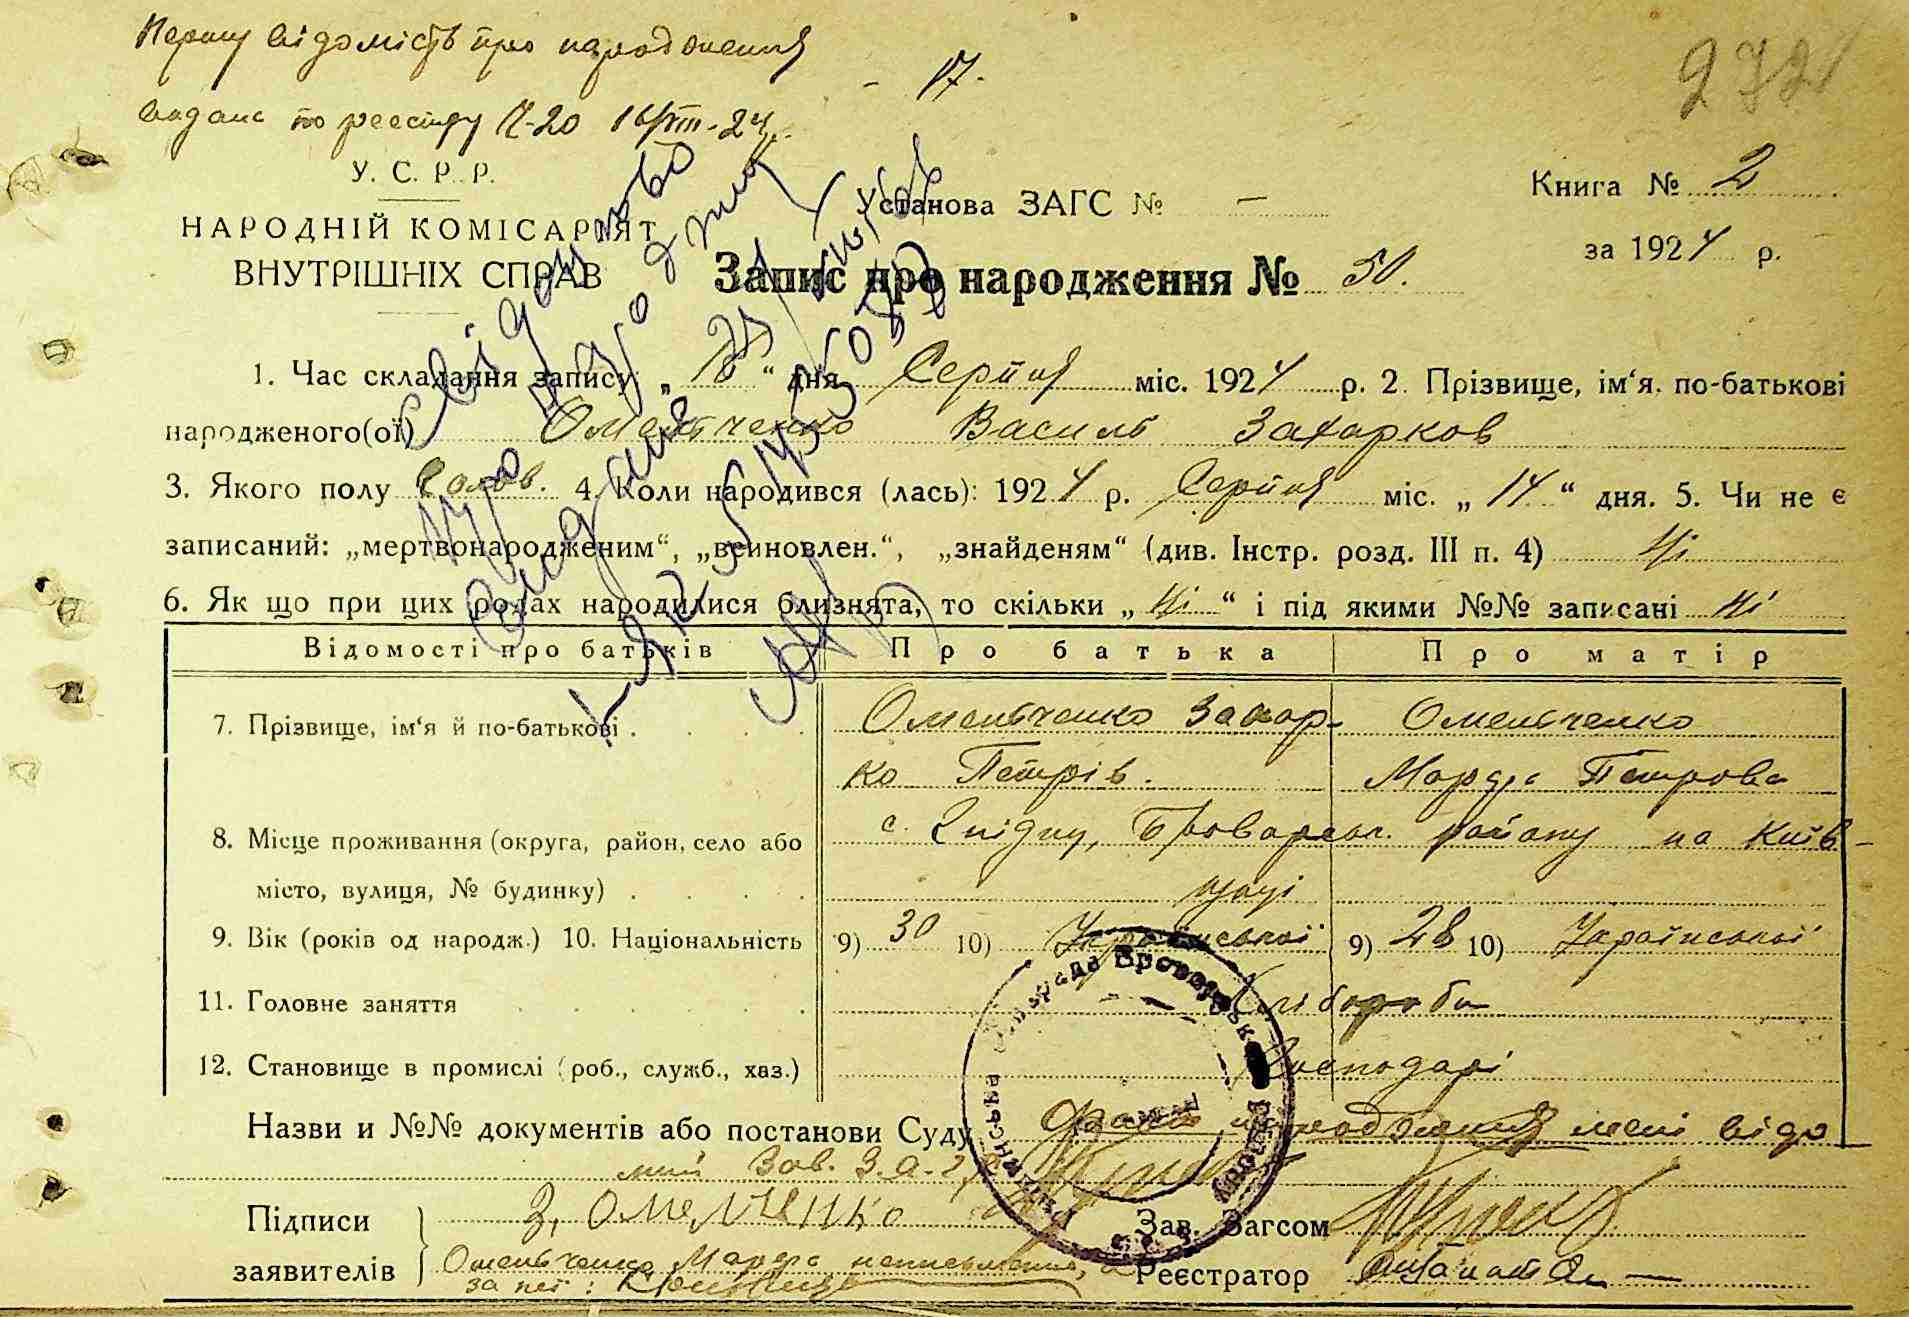 Першу відомість про народження
- 17.
272
видано по реестру Ч-20 16/VIII-24.
У. С. Р. Р.
НАРОДНІЙ КОМІСАРІЯТ
ВНУТРІШНІХ СПРАВ
Установа ЗАГС № —
Книга № 2
за 1924 р.
Запис про народження № 50.
Свідоцтво
про народження
видане
1. Час складання запису „16“ дня Серпня міс. 1924 р. 2. Прізвище, ім‘я, по-батькові
народженого(ої) Омельченко Василь Захарков
3. Якого полу Чолов. 4. Коли народився (лась): 1924 р. Серпня міс. „14“ дня. 5. Чи не є
записаний: „мертвонародженим“, „всиновлен.“, „знайденям“ (див. Інстр. розд. III п. 4) Ні
6. Як що при цих родах народилися близнята, то скільки „Ні“ і під якими №№ записані Ні
Відомості про батьків Про батька Про матір
7. Прізвище, ім‘я й по-батькові . Омельченко Захар- Омельченко
ко Петрів. Марфа Петрова
8. Місце проживання (округа, район, село або с. Гнідин, Броварськ. району на Київ-
місто, вулиця, № будинку) . щині
9. Вік (років од народж.) 10. Національність 9) 30 10) Української 9) 28 10) Української
11. Головне заняття Хлібороби
12. Становище в промислі (роб., служб., хаз.) Господарі
Назви и №№ документів або постанови Суду Факт народження мені відо
мий Зав. З.А.Г.
Підписи З. Омелченко Зав. Загсом
заявителів Омельченко Марфа неписьменна, а Реєстратор
за неї :